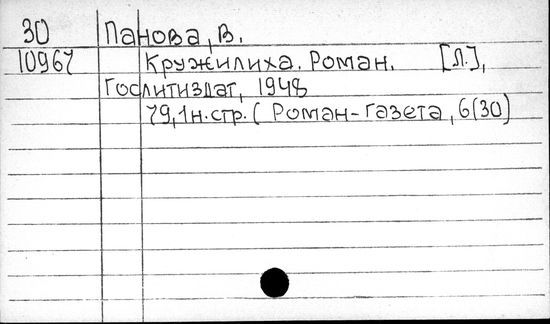 30 Панова, В.
10967 Кружилиха. Роман. [Л.],
Гослитиздат, 1948
79,1н.стр. ( Роман-газета, 6(30)